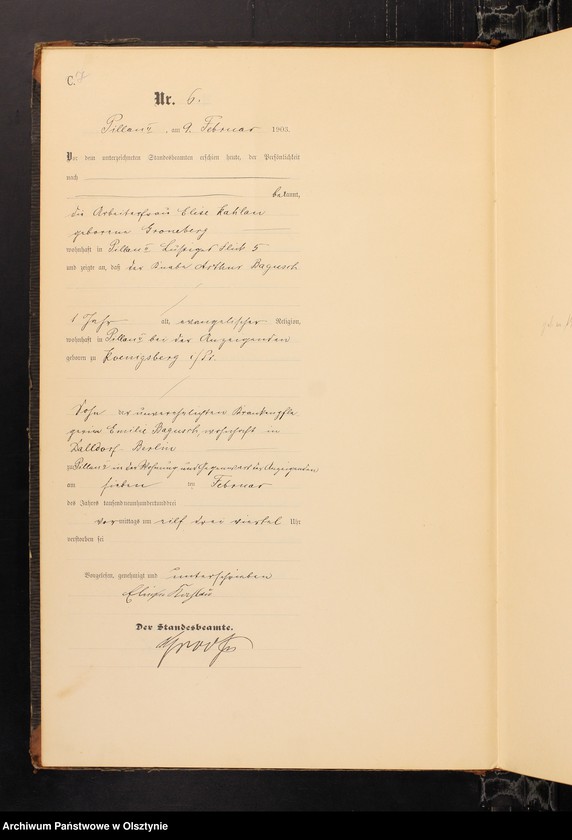 C.
Nr. 6.
Pillau, am 9. Februar 1903.
Vor dem unterzeichneten Standesbeamten erschien heute, der Persönlichkeit
nach
bekannt,
die Arbeiterfrau Elise Kahlau
geborene Groneberg
wohnhaft in Pillau 5
und zeigte an, daß der Knabe Arthur Bagusch
1 Jahr alt, evangelischer Religion,
wohnhaft in Pillau bei der Anzeigenden
geboren zu Koenigsberg i/Pr.
Sohn der unverehelichten Krankenpfle
gerin Emilie Bagusch, wohnhaft in
Dalldorf-Berlin
zu Pillau in der Wohnung und Gegenwart der Anzeigenden
am sieben ten Februar
des Jahres tausend neunhundertunddrei
vormittags um elf drei viertel Uhr
verstorben sei
Vorgelesen, genehmigt und unterschrieben
Der Standesbeamte.
Archiwum Państwowe w Olsztynie